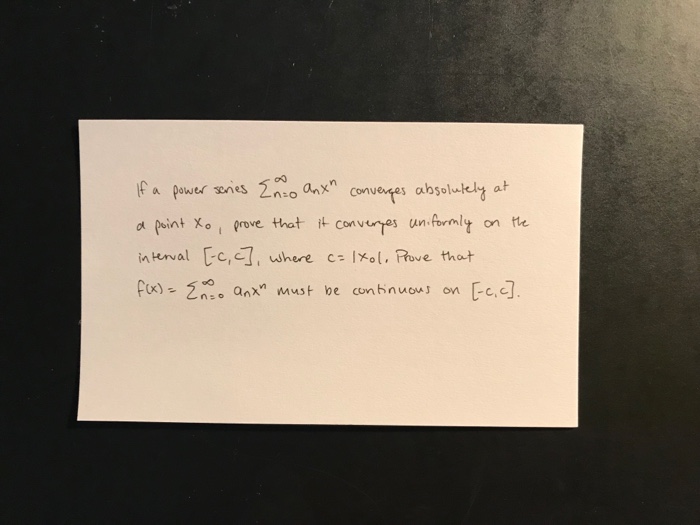 If a power series ∑_{n=0}^∞ aₙxⁿ converges absolutely at
a point x₀, prove that it converges uniformly on the
interval [-c,c], where c = |x₀|. Prove that
f(x) = ∑_{n=0}^∞ aₙxⁿ must be continuous on [-c,c].